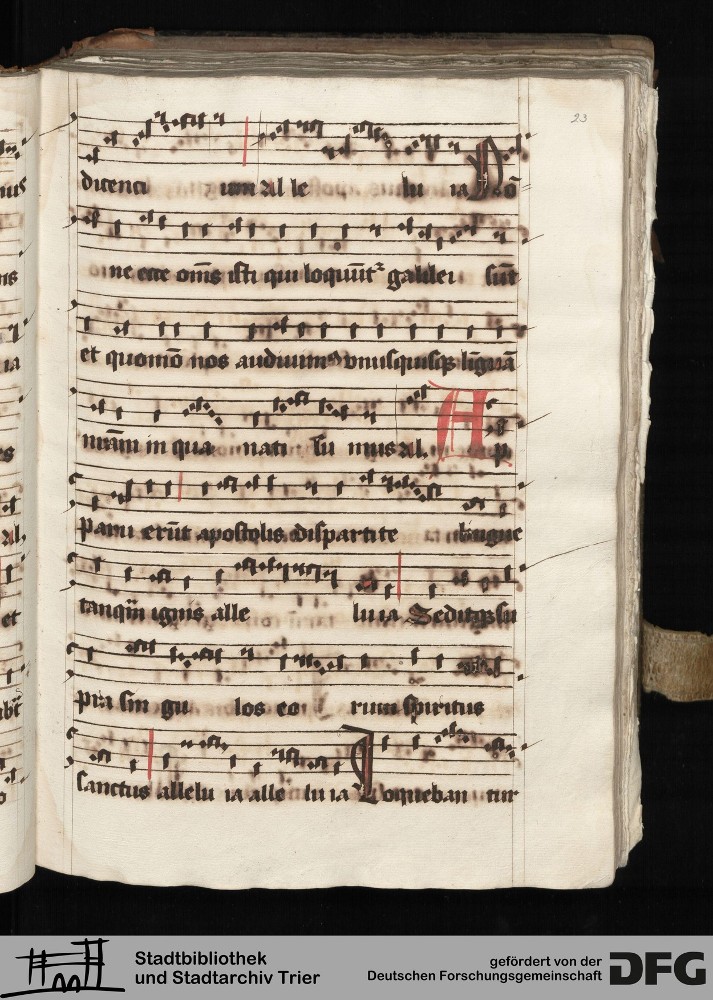 23
dicenci um Al le lu ia Nō
ne ecce om̄s isti qui loquūt᷑ galilei sūt
et quomō nos audiuim᷒ vnusquisq̷ linguā
nr̄am in qua nati su mus Al. Ap
paru erūt apostolis dispartite lingue
tanqͫ ignis alle lu ia Seditq̷ su
pra sin gu los eo rum spiritus
sanctus allelu ia alle lu ia Loqueban tur
Stadtbibliothek
und Stadtarchiv Trier
gefördert von der
Deutschen Forschungsgemeinschaft
DFG